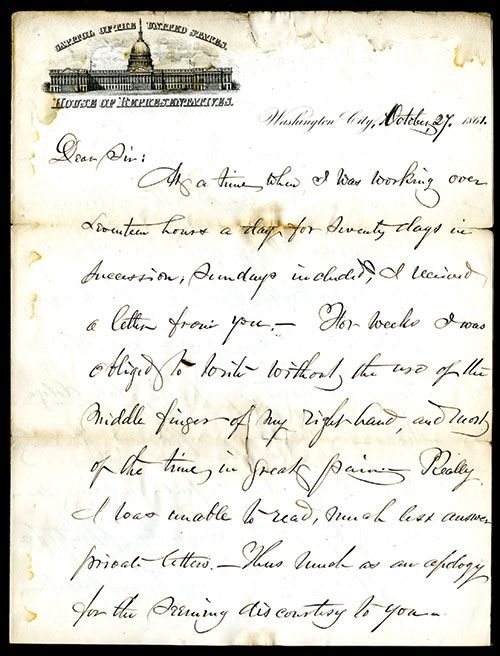 CAPITOL OF THE UNITED STATES.
HOUSE OF REPRESENTATIVES.
Washington City, October, 27. 1861.
Dear Sir:
At a time, when I was working over
seventeen hours a day, for seventy days in
succession, Sundays included, I received
a letter from you.— For weeks I was
obliged to write without the use of the
middle finger of my right hand, and most
of the time, in great pain— Really
I was unable to read, much less answer
private letters.— Thus much as an apology
for the seeming discourtesy to you—